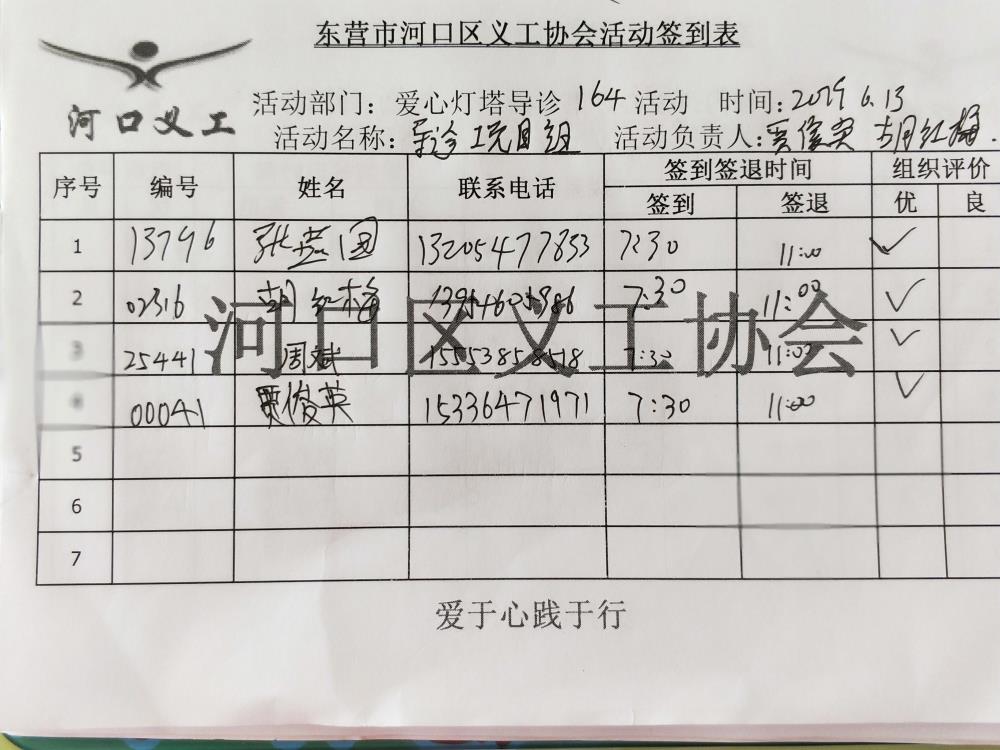 东营市河口区义工协会活动签到表
河口义工
活动部门：爱心灯塔导诊 164 活动 时间：2019 6.13
活动名称：导诊项目组 活动负责人：贾俊英 胡红梅.
序号 编号 姓名 联系电话 签到签退时间 组织评价
签到 签退 优 良
1 13796 张燕团 13205477853 7:30 11:00 ✓
2 02316 胡红梅 7:30 11:00 ✓
3 25441 周斌 15553858518 7:30 11:00 ✓
4 00041 贾俊英 15336471971 7:30 11:00 ✓
5
6
7
河口区义工协会
爱于心践于行